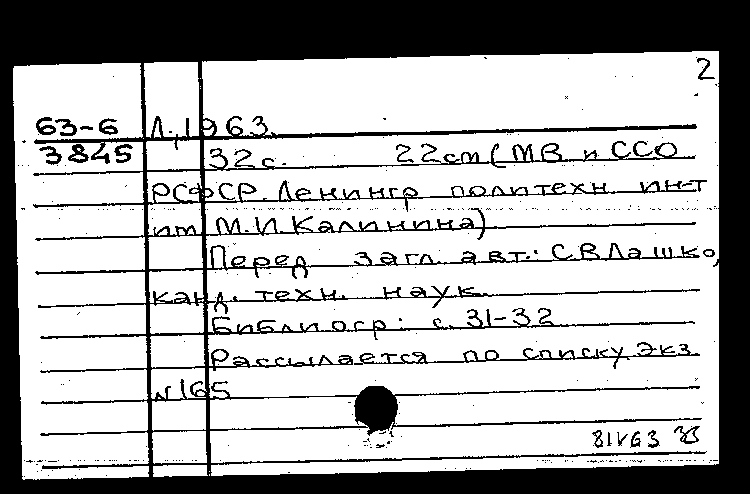 2
63-6 Л., 1963.
3845 32 с. 22 cm (МВ и ССО
РСФСР. Ленингр политехн. ин-т
им М.И. Калинина)
Перед загл. авт.: С.В Лашко,
канд. техн. наук.
Библиогр: с. 31-32
Рассылается по списку. Экз.
N 165